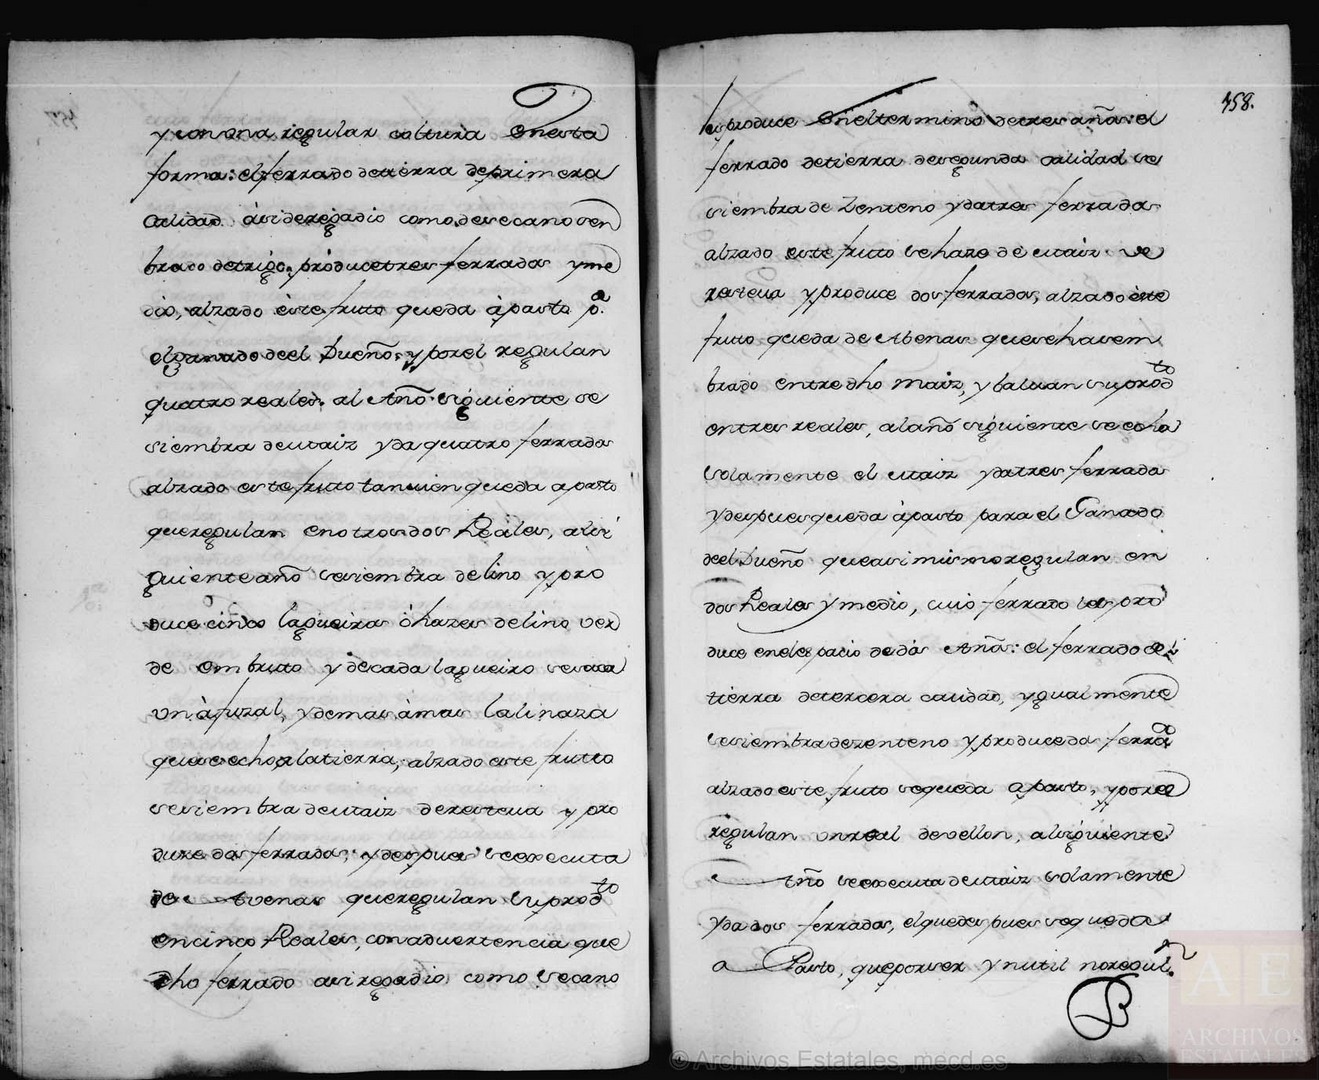 y con una regular coltura en esta
forma: el ferrado de tierra de primera
Calidad àsi de regadio como de secano sem
brado de trigo, produce tres ferrados y me
dio, alzado èste fruto queda à pasto p.ª
el ganado de el Dueño, y por el regulan
quatro reales, al Año siguiente se
siembra de maiz y da quatro ferrados
alzado este fruto tanvien queda a pasto
que regulan en otros dos Reales, al si
guiente año se siembra de lino y pro
duce cinco lagueiras ò hazes de lino ver
de em bruto y de cada lagueiro se saca
un àfusal, y demas àmas la linaza
que se echo a la tierra, alzado este frutto
se siembra de maiz de resteva y pro
duze dos ferrados, y despues se executa
de Avenas que regulan su prod.to
en cinco Reales, con advertencia que
dho ferrado asi regadio como secano
458.
lo produce en el termino de tres años: el
ferrado de tierra de segunda calidad se
siembra de Zenteno y da tres ferrados
alzado este fruto se haze de maiz de
resteva y produce dos ferrados, alzado èste
fruto queda de Abenas que se ha sem
brado entre dho maiz, y baluan su prod.to
en tres reales, al año siguiente se echa
solamente el maiz y da tres ferrados
y despues queda à pasto para el Ganado
de el Dueño que asi mismo regulan en
dos Reales y medio, cuio ferrado los pro
duce en el espacio de dos Años: el ferrado de
tierra de tercera calidad, ygualmente
se siembra de zenteno y produce dos ferra.dos
alzado este fruto se queda a pasto, y por el
regulan un real de vellon, al siguiente
Año se executa de maiz solamente
y da dos ferrados, el que despues se queda
a Pasto, que por ser ynutil no regul.n
© Archivos Estatales, mecd.es
AE
ARCHIVOS
ESTATALES